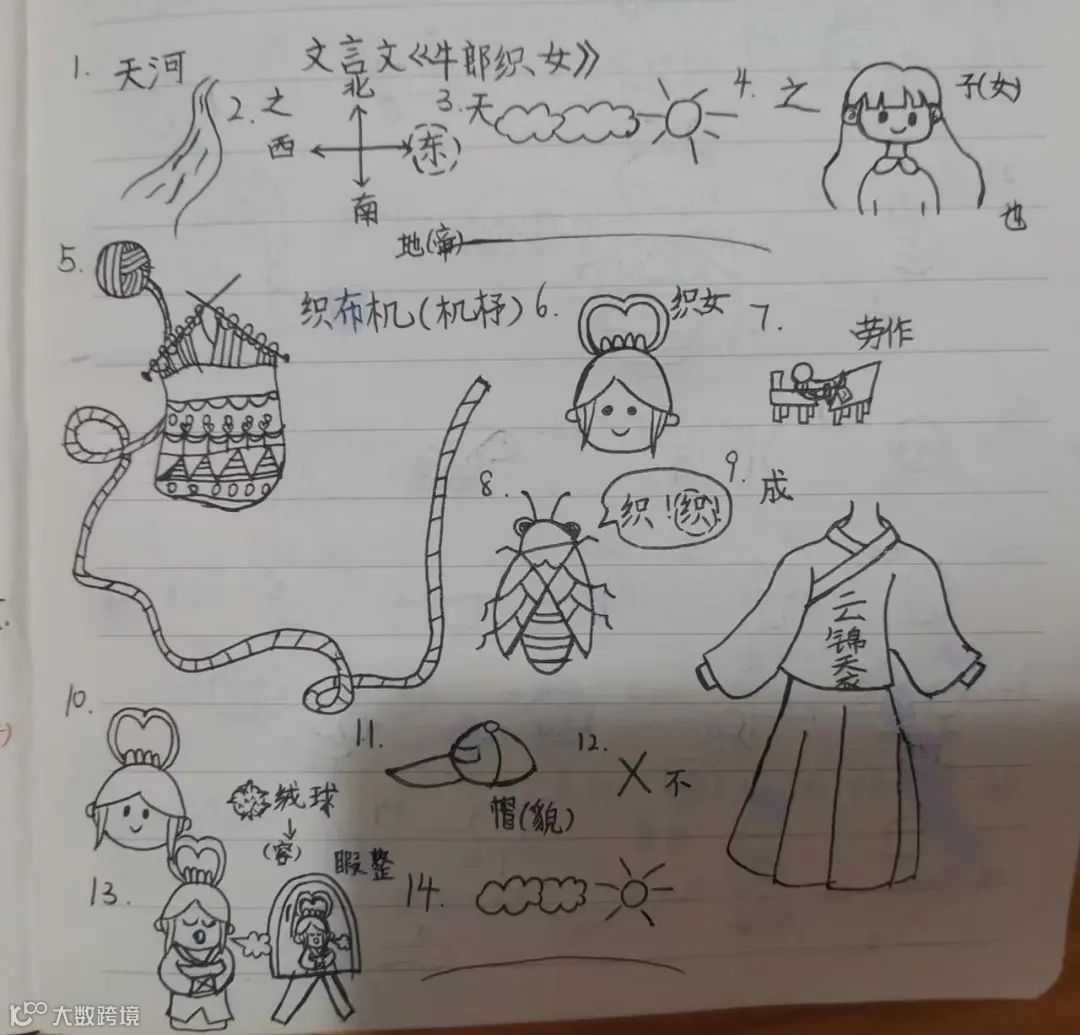 文言文《牛郎织女》
1. 天河
2. 之
北
西
东
南
3. 天
地(帝)
4. 之
子(女)
也
5.
织布机(机杼)
6.
织女
7.
劳作
8.
织!织!
9. 成
云锦天衣
10.
绒球
(容)
11.
帽(貌)
12.
X 不
13.
暇整
14.
大数跨境